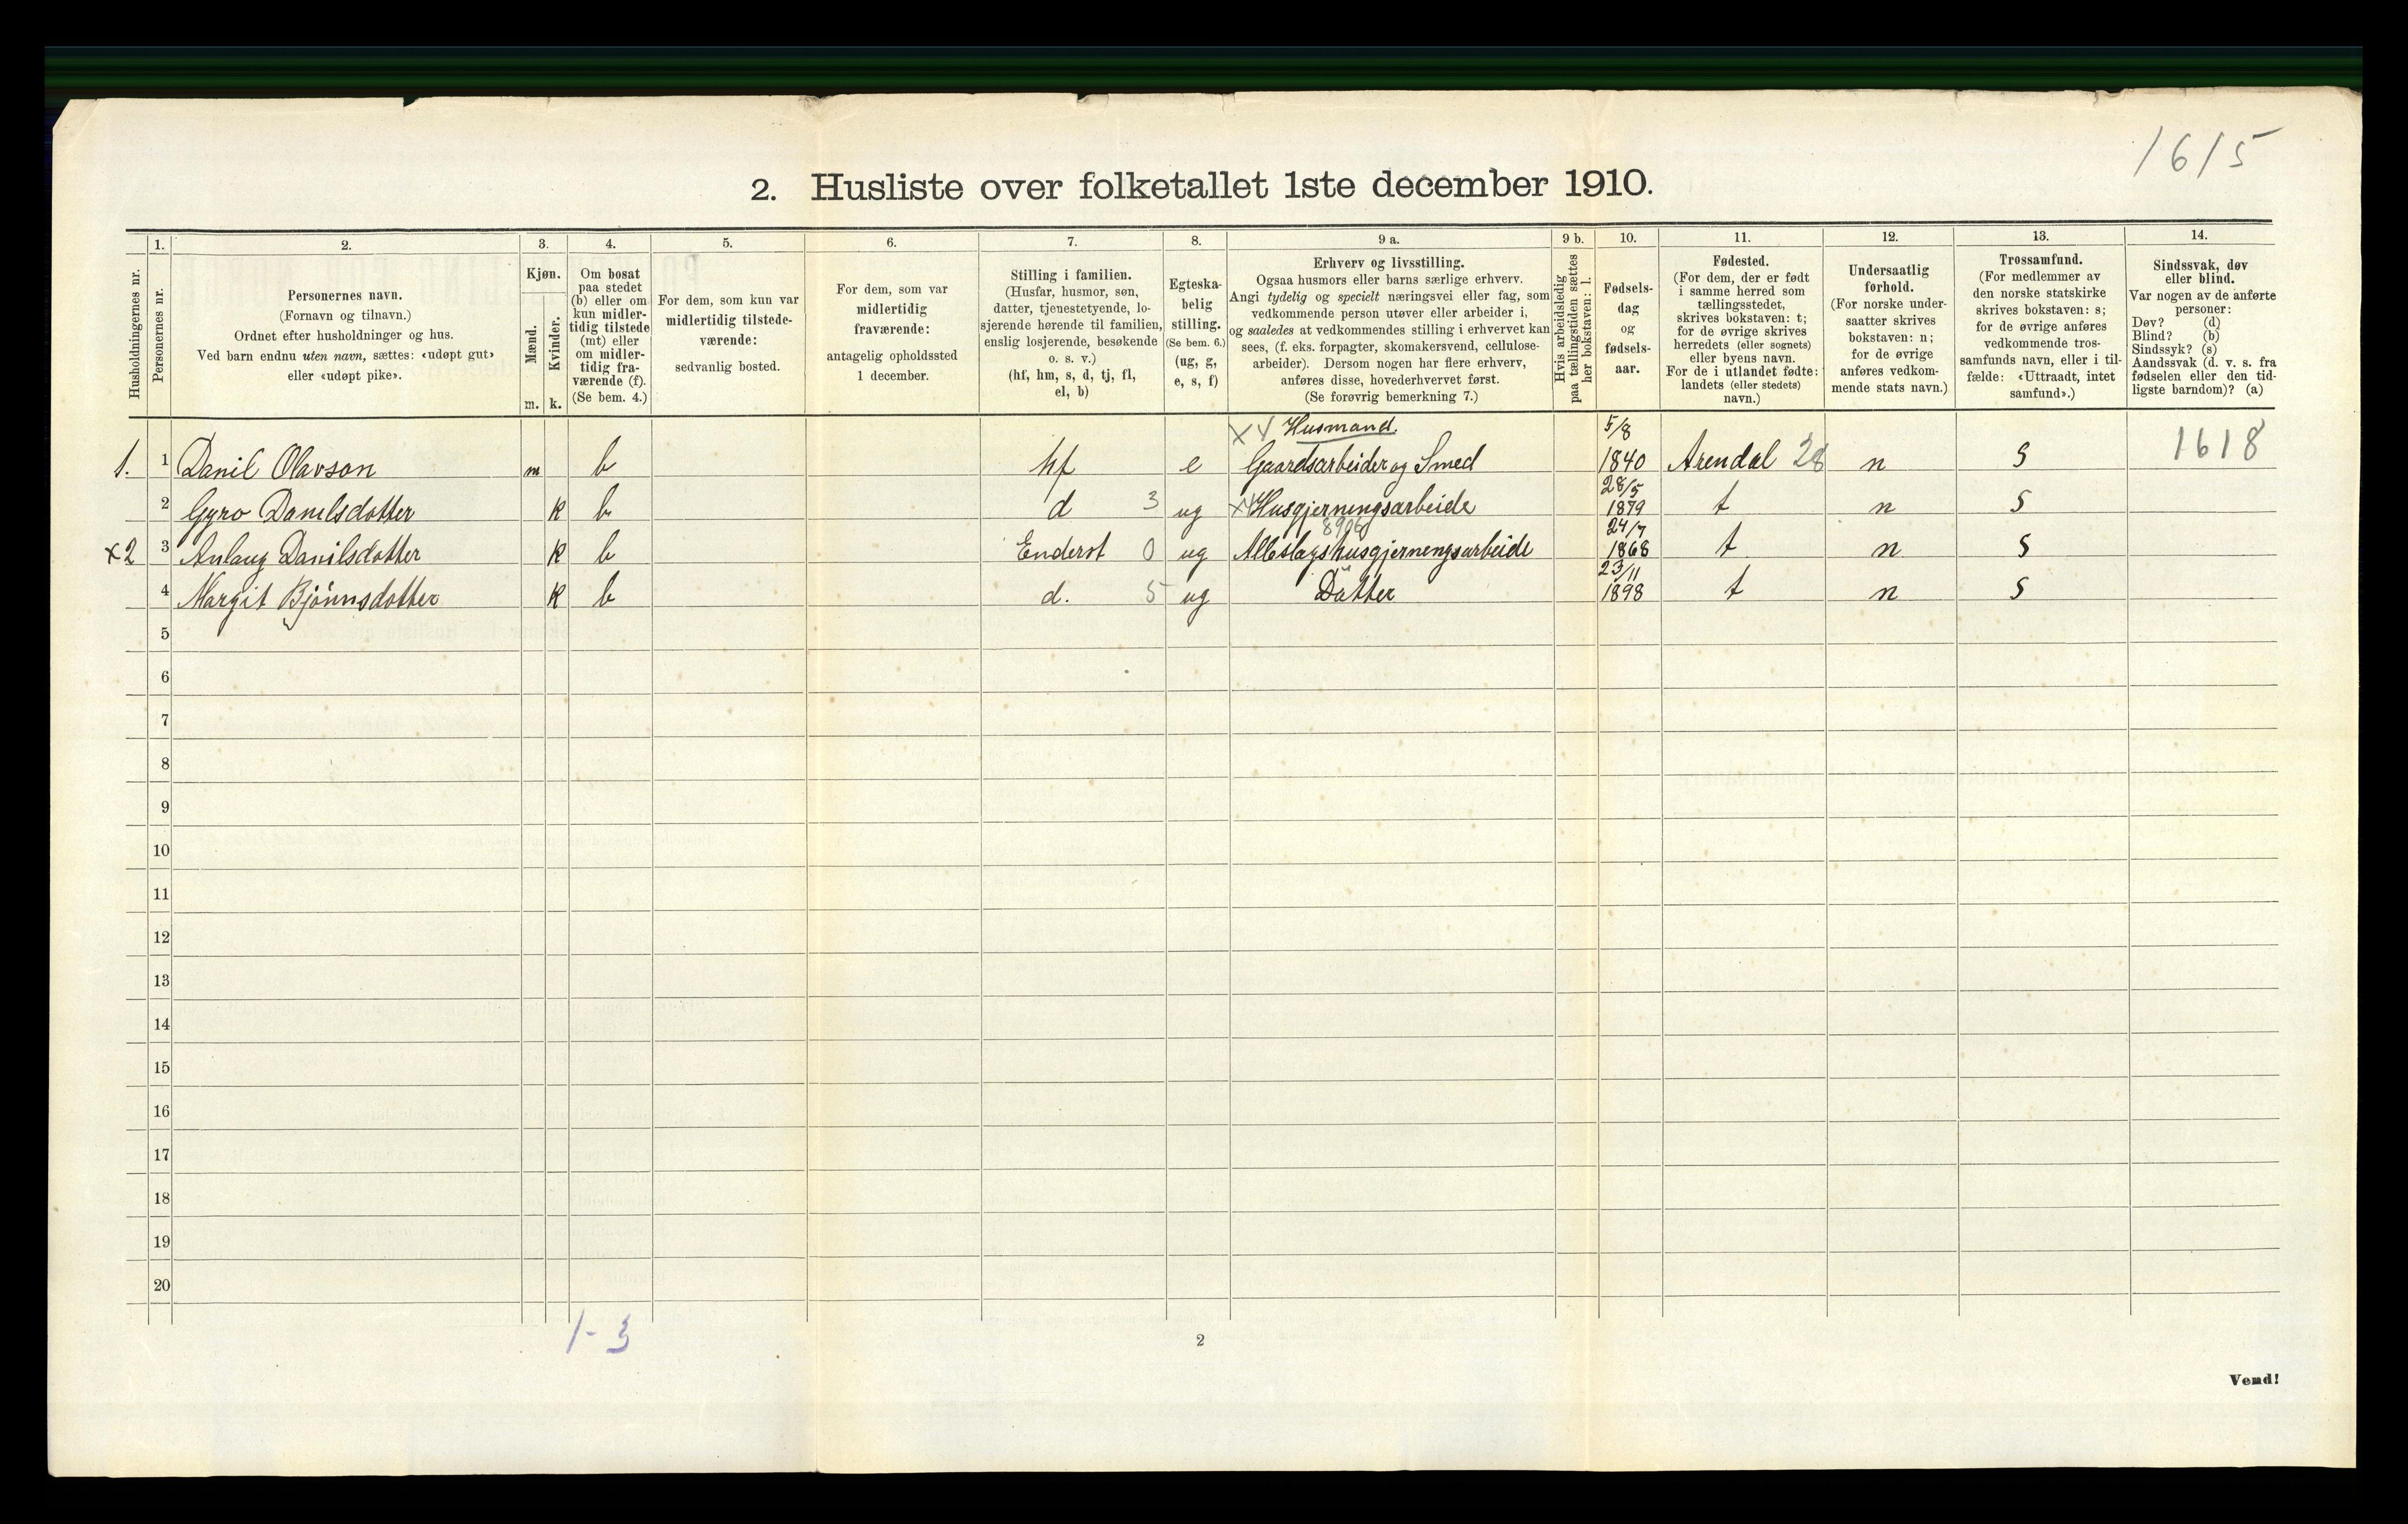 1615
2. Husliste over folketallet 1ste december 1910.
Husholdningernes nr.
1.
Personernes nr.
2.
Personernes navn.
(Fornavn og tilnavn.)
Ordnet efter husholdninger og hus.
Ved barn endnu uten navn, sættes: «udøpt gut»
eller «udøpt pike».
3.
Kjøn.
Mænd.
Kvinder.
m. k.
4.
Om bosat
paa stedet
(b) eller om
kun midler-
tidig tilstede
(mt) eller
om midler-
tidig fra-
værende (f).
(Se bem. 4.)
5.
For dem, som kun var
midlertidig tilstede-
værende:
sedvanlig bosted.
6.
For dem, som var
midlertidig
fraværende:
antagelig opholdssted
1 december.
7.
Stilling i familien.
(Husfar, husmor, søn,
datter, tjenestetyende, lo-
sjerende hørende til familien,
enslig losjerende, besøkende
o. s. v.)
(hf, hm, s, d, tj, fl,
el, b)
8.
Egteska-
belig
stilling.
(Se bem. 6.)
(ug, g,
e, s, f)
9 a.
Erhverv og livsstilling.
Ogsaa husmors eller barns særlige erhverv.
Angi tydelig og specielt næringsvei eller fag, som
vedkommende person utøver eller arbeider i,
og saaledes at vedkommendes stilling i erhvervet kan
sees, (f. eks. forpagter, skomakersvend, cellulose-
arbeider). Dersom nogen har flere erhverv,
anføres disse, hovederhvervet først.
(Se forøvrig bemerkning 7.)
9 b.
Hvis arbeidsledig
paa tællingstiden sættes
her bokstaven: l.
10.
Fødsels-
dag
og
fødsels-
aar.
11.
Fødested.
(For dem, der er født
i samme herred som
tællingsstedet,
skrives bokstaven: t;
for de øvrige skrives
herredets (eller sognets)
eller byens navn.
For de i utlandet fødte:
landets (eller stedets)
navn.)
12.
Undersaatlig
forhold.
(For norske under-
saatter skrives
bokstaven: n;
for de øvrige
anføres vedkom-
mende stats navn.)
13.
Trossamfund.
(For medlemmer av
den norske statskirke
skrives bokstaven: s;
for de øvrige anføres
vedkommende tros-
samfunds navn, eller i til-
fælde: «Uttraadt, intet
samfund».)
14.
Sindssvak, døv
eller blind.
Var nogen av de anførte
personer:
Døv? (d)
Blind? (b)
Sindssyk? (s)
Aandssvak (d. v. s. fra
fødselen eller den tid-
ligste barndom)? (a)
x4 Husmand. 5/8
1. 1 Danil Olavson m b hf e Gaardsarbeider og Smed 1840 Arendal 28 n S 1618
28/5
2 Gyro Danilsdotter k b d 3 ug x4 Husgjerningsarbeide 1879 t n S
8906 24/7
x2 3 Anlaug Danilsdotter k b Enderst 0 ug Alleslagshusgjerningsarbeide 1868 t n S
23/11
4 Margit Bjönnsdotter k b d. 5 ug Datter 1898 t n S
5
6
7
8
9
10
11
12
13
14
15
16
17
18
19
20
1-3
2
Vend!